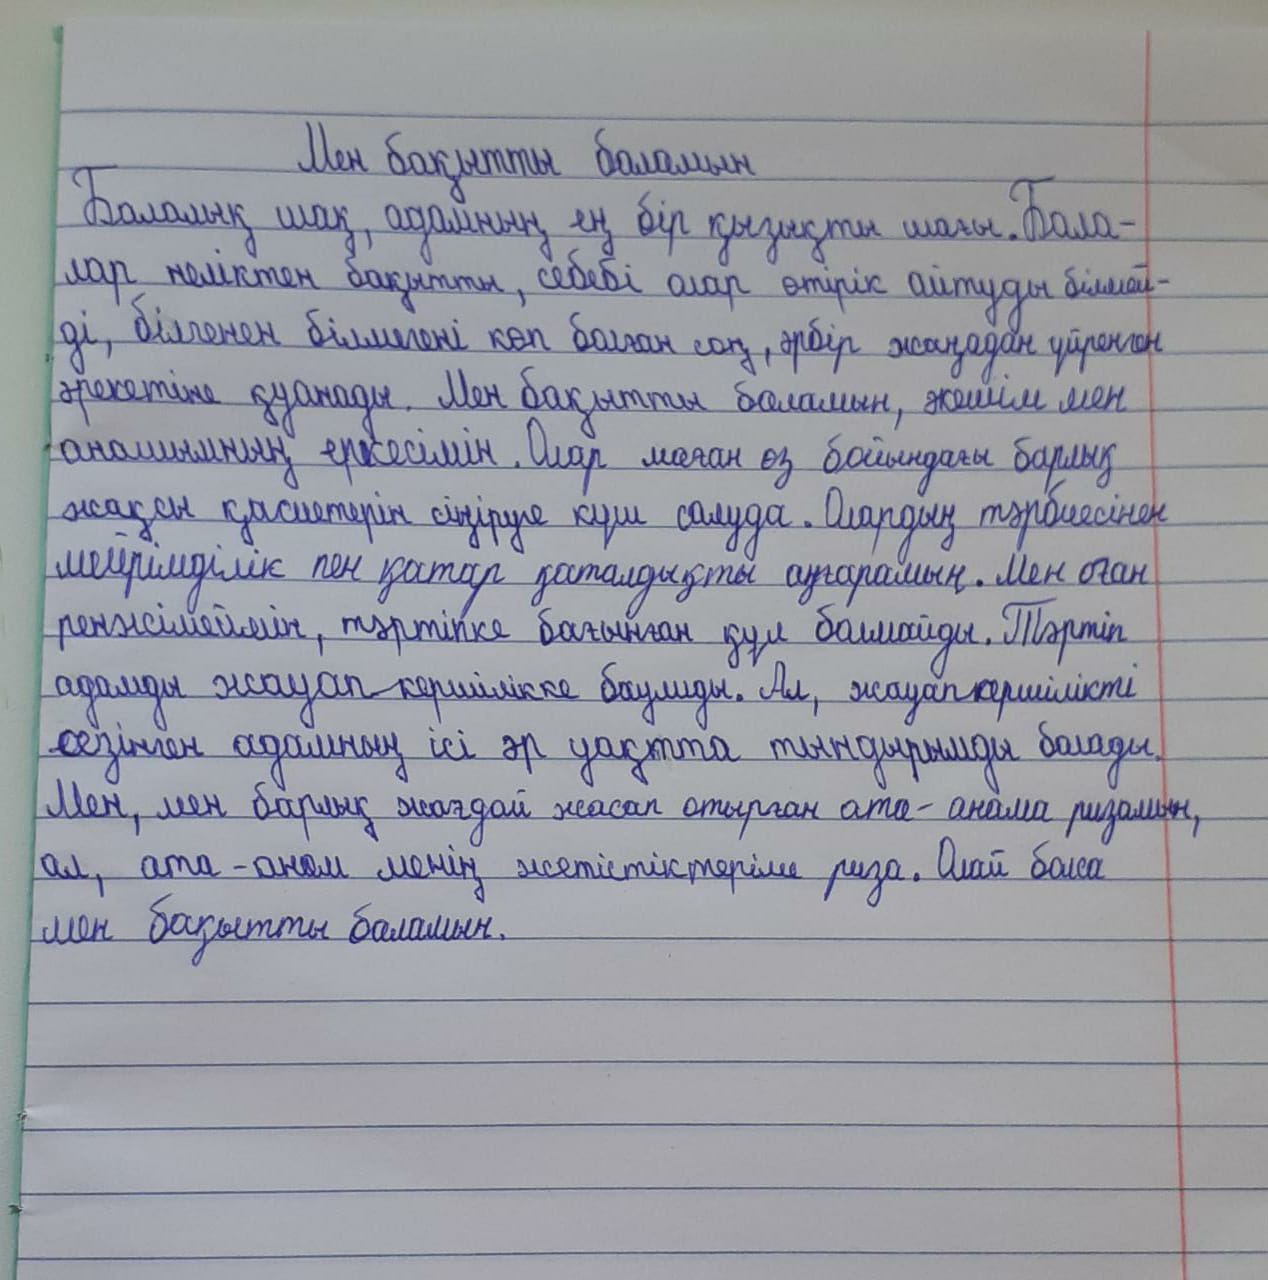 Мен бақытты баламын
Балалық шақ, адамның ең бір қызықты шағы. Бала-
лар неліктен бақытты, себебі олар өтірік айтуды білмей-
ді, білгенен білмегені көп болған соң, әрбір жаңадан үйренген
әрекетіне қуанады. Мен бақытты баламын, әкешім мен
анашымның еркесімін. Олар маған өз бойындағы барлық
жақсы қасиетерін сіңіруге күш салуда. Олардың тәрбиесінен
мейрімділік пен қатар қаталдықты аңғарамың. Мен оған
ренжімеймін, тәртіпке бағынған құл болмайды. Тәртіп
адамды жауап-кершілікке баулиды. Ал, жауапкершілікті
сезінген адамның ісі әр уақтта тындырымды болады.
Мен, мен барлық жағдай жасап отырған ата-анама ризамын,
ал, ата-анам менің жетістіктеріме риза. Олай болса
мен бақытты баламын.